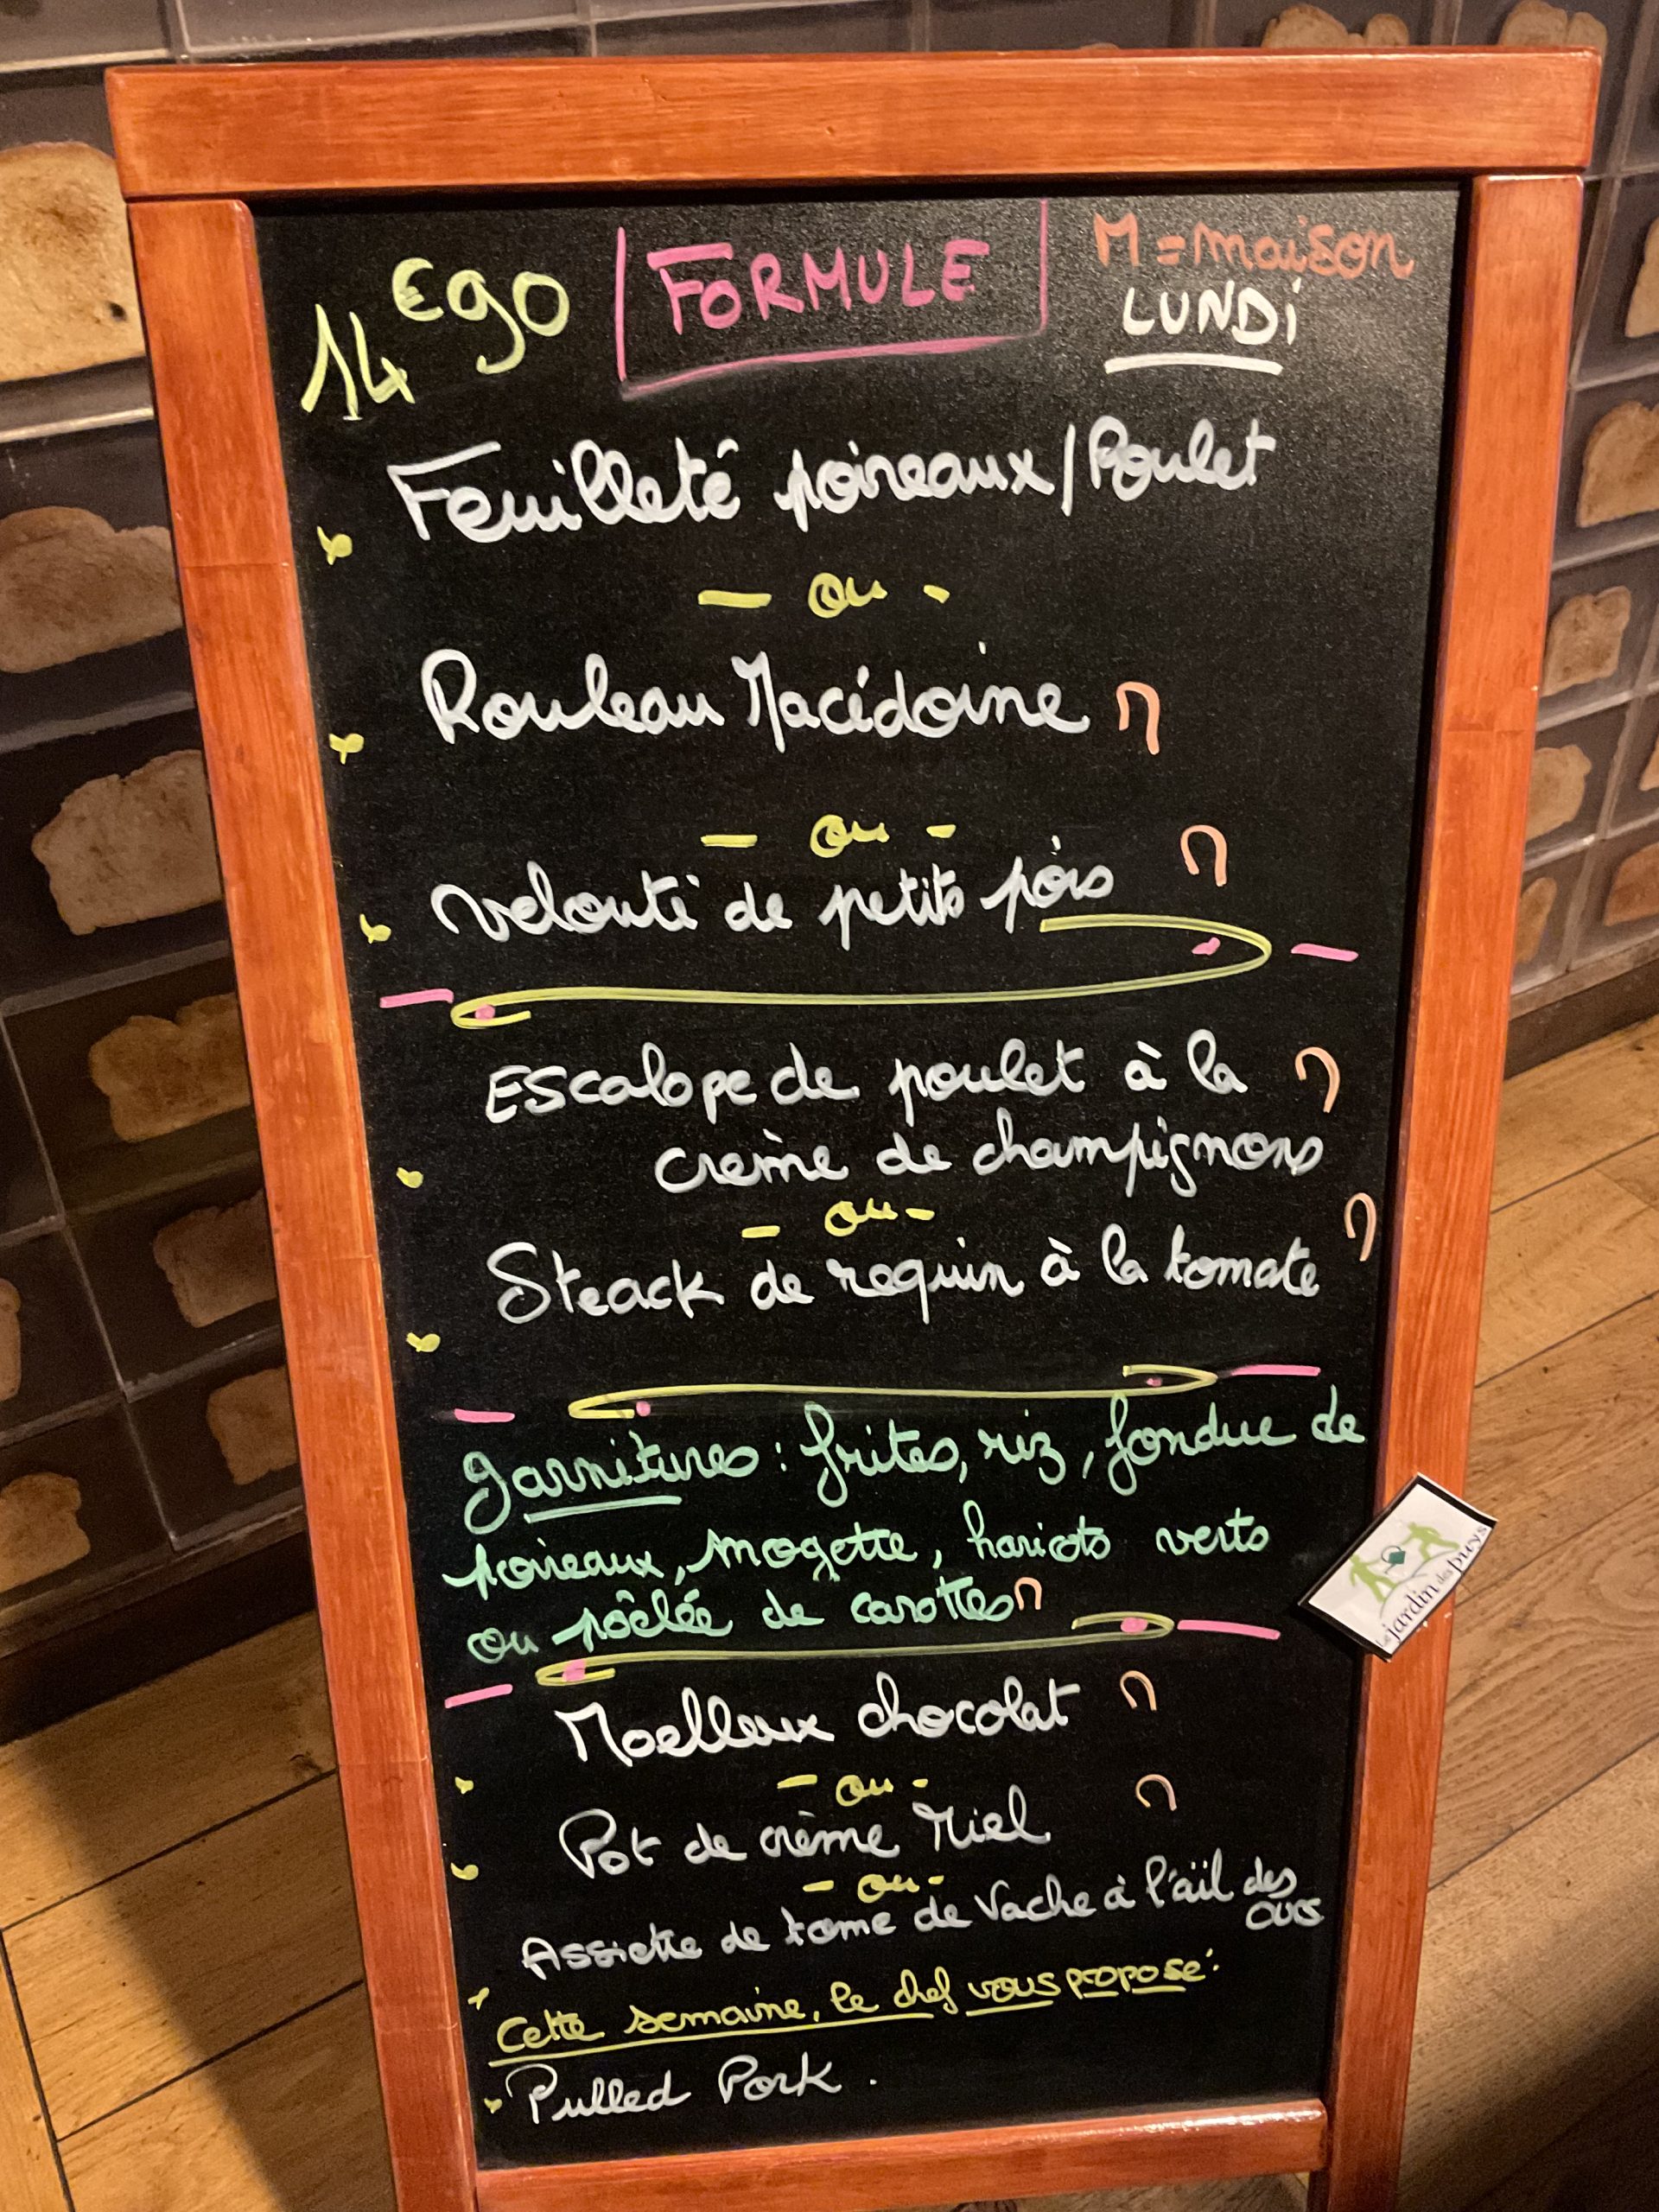 14€90
FORMULE
M = maison
LUNDI
Feuilleté poireaux/Poulet
- ou -
Rouleau Macédoine M
- ou -
Velouté de petits pois M
Escalope de poulet à la M
crème de champignons
- ou -
Steack de requin à la tomate M
garnitures : frites, riz, fondue de
poireaux, mogette, haricots verts
ou pôêlée de carottes M
Moelleux chocolat M
- ou -
Pot de crème Miel M
- ou -
Assiette de tome de Vache à l'aïl des
ours
Cette semaine, le chef vous propose :
Pulled Pork.
le jardin des puys